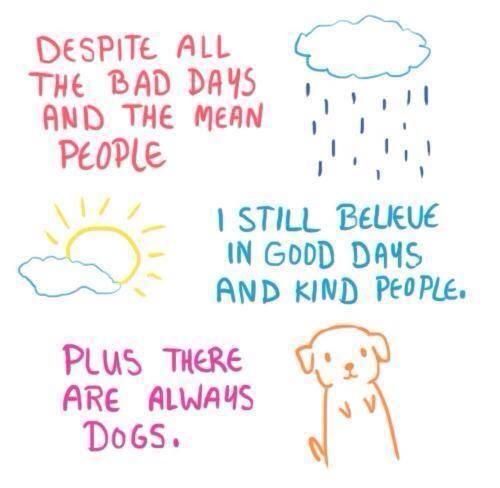 DESPITE ALL
THE BAD DAYS
AND THE MEAN
PEOPLE
I STILL BELIEVE
IN GOOD DAYS
AND KIND PEOPLE.
PLUS THERE
ARE ALWAYS
DOGS.